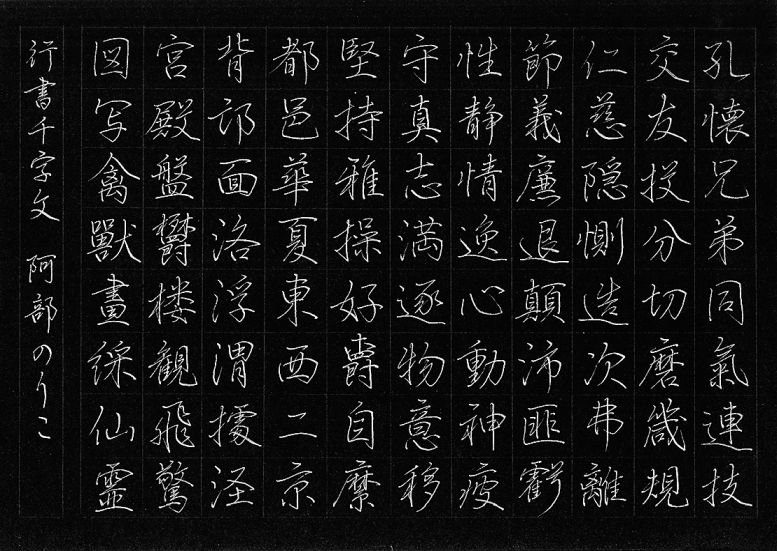 孔懐兄弟同氣連枝
交友投分切磨箴規
仁慈隠惻造次弗離
節義廉退顛沛匪虧
性静情逸心動神疲
守真志満逐物意移
堅持雅操好爵自縻
都邑華夏東西二京
背邙面洛浮渭據涇
宮殿盤欝楼観飛驚
図写禽獸畫綵仙霊
行書千字文 阿部のりこ